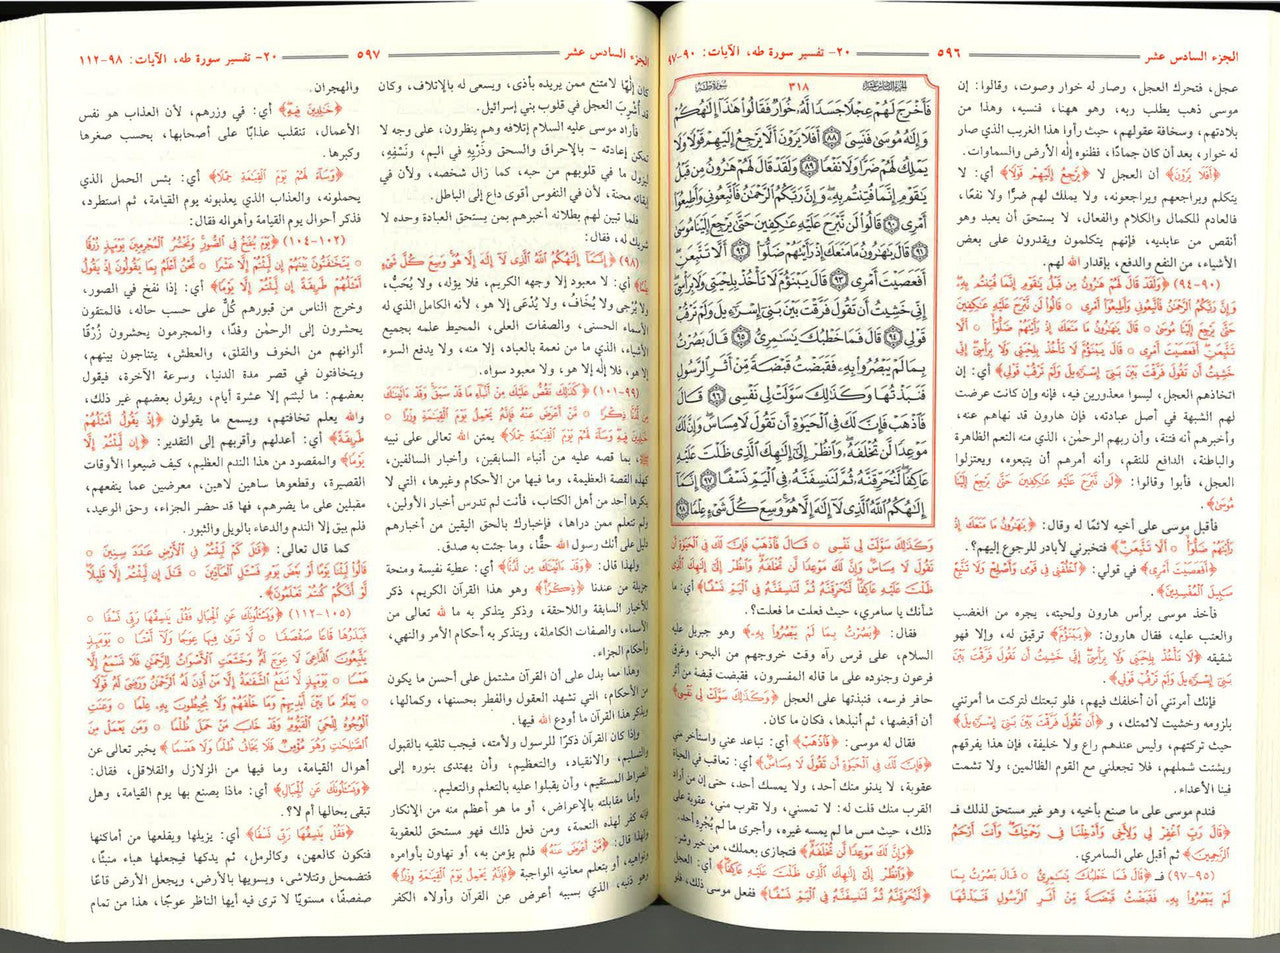 الجزء السادس عشر
٥٩٦
٢٠- تفسير سورة طه، الآيات: ٩٠-٩٧
عجل، فتحرك العجل، وصار له خوار وصوت، وقالوا: إن
موسى ذهب يطلب ربه، وهو ههنا، فنسيه، وهذا من
بلادتهم، وسخافة عقولهم، حيث رأوا هذا الغريب الذي صار
له خوار، بعد أن كان جمادًا، فظنوه إله الأرض والسماوات.
﴿أَفَلَا يَرَوْنَ﴾ أن العجل لا ﴿يَرْجِعُ إِلَيْهِمْ قَوْلًا﴾ أي: لا
يتكلم ويراجعهم ويراجعونه، ولا يملك لهم ضرًّا ولا نفعًا،
فالعادم للكمال والكلام والفعال، لا يستحق أن يعبد وهو
أنقص من عابديه، فإنهم يتكلمون ويقدرون على بعض
الأشياء، من النفع والدفع، بإقدار الله لهم.
(٩٠-٩٤) ﴿وَلَقَدْ قَالَ لَهُمْ هَٰرُونُ مِن قَبْلُ يَٰقَوْمِ إِنَّمَا فُتِنتُم بِهِۦ
وَإِنَّ رَبَّكُمُ ٱلرَّحْمَٰنُ فَٱتَّبِعُونِى وَأَطِيعُوٓا۟ أَمْرِى ۞ قَالُوا۟ لَن نَّبْرَحَ عَلَيْهِ عَٰكِفِينَ
حَتَّىٰ يَرْجِعَ إِلَيْنَا مُوسَىٰ ۞ قَالَ يَٰهَٰرُونُ مَا مَنَعَكَ إِذْ رَأَيْتَهُمْ ضَلُّوٓا۟ ۞ أَلَّا
تَتَّبِعَنِ أَفَعَصَيْتَ أَمْرِى ۞ قَالَ يَبْنَؤُمَّ لَا تَأْخُذْ بِلِحْيَتِى وَلَا بِرَأْسِىٓ إِنِّى
خَشِيتُ أَن تَقُولَ فَرَّقْتَ بَيْنَ بَنِىٓ إِسْرَٰٓءِيلَ وَلَمْ تَرْقُبْ قَوْلِى﴾ أي: إن
اتخاذهم العجل، ليسوا معذورين فيه، فإنه وإن كانت عرضت
لهم الشبهة في أصل عبادته، فإن هارون قد نهاهم عنه،
وأخبرهم أنه فتنة، وأن ربهم الرحمٰن، الذي منه النعم الظاهرة
والباطنة، الدافع للنقم، وأنه أمرهم أن يتبعوه، ويعتزلوا
العجل، فأبوا وقالوا: ﴿لَن نَّبْرَحَ عَلَيْهِ عَٰكِفِينَ حَتَّىٰ يَرْجِعَ إِلَيْنَا
مُوسَىٰ﴾.
فأقبل موسى على أخيه لائمًا له وقال: ﴿يَٰهَٰرُونُ مَا مَنَعَكَ إِذْ
رَأَيْتَهُمْ ضَلُّوٓا۟ ۞ أَلَّا تَتَّبِعَنِ﴾ فتخبرني لأبادر للرجوع إليهم؟.
﴿أَفَعَصَيْتَ أَمْرِى﴾ في قولي: ﴿ٱخْلُفْنِى فِى قَوْمِى وَأَصْلِحْ وَلَا تَتَّبِعْ
سَبِيلَ ٱلْمُفْسِدِينَ﴾.
فأخذ موسى برأس هارون ولحيته، يجره من الغضب
والعتب عليه، فقال هارون: ﴿يَبْنَؤُمَّ﴾ ترقيق له، وإلا فهو
شقيقه ﴿لَا تَأْخُذْ بِلِحْيَتِى وَلَا بِرَأْسِىٓ إِنِّى خَشِيتُ أَن تَقُولَ فَرَّقْتَ بَيْنَ
بَنِىٓ إِسْرَٰٓءِيلَ وَلَمْ تَرْقُبْ قَوْلِى﴾.
فإنك أمرتني أن أخلفك فيهم، فلو تبعتك لتركت ما أمرتني
بلزومه وخشيت لائمتك، و ﴿أَن تَقُولَ فَرَّقْتَ بَيْنَ بَنِىٓ إِسْرَٰٓءِيلَ﴾
حيث تركتهم، وليس عندهم راع ولا خليفة، فإن هذا يفرقهم
ويشتت شملهم، فلا تجعلني مع القوم الظالمين، ولا تشمت
فينا الأعداء.
فندم موسى على ما صنع بأخيه، وهو غير مستحق لذلك فـ
﴿قَالَ رَبِّ ٱغْفِرْ لِى وَلِأَخِى وَأَدْخِلْنَا فِى رَحْمَتِكَ وَأَنتَ أَرْحَمُ
ٱلرَّٰحِمِينَ﴾ ثم أقبل على السامري.
(٩٥-٩٧) فـ ﴿قَالَ فَمَا خَطْبُكَ يَٰسَٰمِرِىُّ ۞ قَالَ بَصُرْتُ بِمَا
لَمْ يَبْصُرُوا۟ بِهِۦ فَقَبَضْتُ قَبْضَةً مِّنْ أَثَرِ ٱلرَّسُولِ فَنَبَذْتُهَا
٣١٨
فَأَخْرَجَ لَهُمْ عِجْلًا جَسَدًا لَّهُۥ خُوَارٌ فَقَالُوا۟ هَٰذَآ إِلَٰهُكُمْ
وَإِلَٰهُ مُوسَىٰ فَنَسِىَ ٨٨ أَفَلَا يَرَوْنَ أَلَّا يَرْجِعُ إِلَيْهِمْ قَوْلًا وَلَا
يَمْلِكُ لَهُمْ ضَرًّا وَلَا نَفْعًا ٨٩ وَلَقَدْ قَالَ لَهُمْ هَٰرُونُ مِن قَبْلُ
يَٰقَوْمِ إِنَّمَا فُتِنتُم بِهِۦ وَإِنَّ رَبَّكُمُ ٱلرَّحْمَٰنُ فَٱتَّبِعُونِى وَأَطِيعُوٓا۟
أَمْرِى ٩٠ قَالُوا۟ لَن نَّبْرَحَ عَلَيْهِ عَٰكِفِينَ حَتَّىٰ يَرْجِعَ إِلَيْنَا مُوسَىٰ
٩١ قَالَ يَٰهَٰرُونُ مَا مَنَعَكَ إِذْ رَأَيْتَهُمْ ضَلُّوٓا۟ ٩٢ أَلَّا تَتَّبِعَنِ
أَفَعَصَيْتَ أَمْرِى ٩٣ قَالَ يَبْنَؤُمَّ لَا تَأْخُذْ بِلِحْيَتِى وَلَا بِرَأْسِىٓ
إِنِّى خَشِيتُ أَن تَقُولَ فَرَّقْتَ بَيْنَ بَنِىٓ إِسْرَٰٓءِيلَ وَلَمْ تَرْقُبْ
قَوْلِى ٩٤ قَالَ فَمَا خَطْبُكَ يَٰسَٰمِرِىُّ ٩٥ قَالَ بَصُرْتُ
بِمَا لَمْ يَبْصُرُوا۟ بِهِۦ فَقَبَضْتُ قَبْضَةً مِّنْ أَثَرِ ٱلرَّسُولِ
فَنَبَذْتُهَا وَكَذَٰلِكَ سَوَّلَتْ لِى نَفْسِى ٩٦ قَالَ
فَٱذْهَبْ فَإِنَّ لَكَ فِى ٱلْحَيَوٰةِ أَن تَقُولَ لَا مِسَاسَ وَإِنَّ لَكَ
مَوْعِدًا لَّن تُخْلَفَهُۥ وَٱنظُرْ إِلَىٰٓ إِلَٰهِكَ ٱلَّذِى ظَلْتَ عَلَيْهِ
عَاكِفًا لَّنُحَرِّقَنَّهُۥ ثُمَّ لَنَنسِفَنَّهُۥ فِى ٱلْيَمِّ نَسْفًا ٩٧ إِنَّمَآ
إِلَٰهُكُمُ ٱللَّهُ ٱلَّذِى لَآ إِلَٰهَ إِلَّا هُوَ وَسِعَ كُلَّ شَىْءٍ عِلْمًا ٩٨
وَكَذَٰلِكَ سَوَّلَتْ لِى نَفْسِى ۞ قَالَ فَٱذْهَبْ فَإِنَّ لَكَ فِى ٱلْحَيَوٰةِ أَن
تَقُولَ لَا مِسَاسَ وَإِنَّ لَكَ مَوْعِدًا لَّن تُخْلَفَهُۥ وَٱنظُرْ إِلَىٰٓ إِلَٰهِكَ ٱلَّذِى
ظَلْتَ عَلَيْهِ عَاكِفًا لَّنُحَرِّقَنَّهُۥ ثُمَّ لَنَنسِفَنَّهُۥ فِى ٱلْيَمِّ نَسْفًا﴾ أي: ما
شأنك يا سامري، حيث فعلت ما فعلت؟.
فقال: ﴿بَصُرْتُ بِمَا لَمْ يَبْصُرُوا۟ بِهِۦ﴾ وهو جبريل عليه
السلام، على فرس رآه وقت خروجهم من البحر، وغرق
فرعون وجنوده على ما قاله المفسرون، فقبضت قبضة من أثر
حافر فرسه، فنبذتها على العجل ﴿وَكَذَٰلِكَ سَوَّلَتْ لِى نَفْسِى﴾
أن أقبضها، ثم أنبذها، فكان ما كان.
فقال له موسى: ﴿فَٱذْهَبْ﴾ أي: تباعد عني واستأخر مني
﴿فَإِنَّ لَكَ فِى ٱلْحَيَوٰةِ أَن تَقُولَ لَا مِسَاسَ﴾ أي: تعاقب في الحياة
عقوبة، لا يدنو منك أحد، ولا يمسك أحد، حتى إن من أراد
القرب منك قلت له: لا تمسني، ولا تقرب مني، عقوبة على
ذلك، حيث مس ما لم يمسه غيره، وأجرى ما لم يُجْرِه أحد.
﴿وَإِنَّ لَكَ مَوْعِدًا لَّن تُخْلَفَهُۥ﴾ فتجازى بعملك، من خير وشر.
﴿وَٱنظُرْ إِلَىٰٓ إِلَٰهِكَ ٱلَّذِى ظَلْتَ عَلَيْهِ عَاكِفًا﴾ أي: العجل
﴿لَّنُحَرِّقَنَّهُۥ ثُمَّ لَنَنسِفَنَّهُۥ فِى ٱلْيَمِّ نَسْفًا﴾ ففعل موسى ذلك، فلو
الجزء السادس عشر
٥٩٧
٢٠- تفسير سورة طه، الآيات: ٩٨-١١٢
كان إلهًا لامتنع ممن يريده بأذى، ويسعى له بالإتلاف، وكان
قد أُشْرِبَ العجل في قلوب بني إسرائيل.
فأراد موسى عليه السلام إتلافه وهم ينظرون، على وجه لا
تمكن إعادته - بالإحراق والسحق وذَرْيِهِ في اليم، ونَسْفِهِ،
ليزول ما في قلوبهم من حبه، كما زال شخصه، ولأن في
إبقائه محنة، لأن في النفوس أقوى داع إلى الباطل.
فلما تبين لهم بطلانه أخبرهم بمن يستحق العبادة وحده لا
شريك له، فقال:
(٩٨) ﴿إِنَّمَآ إِلَٰهُكُمُ ٱللَّهُ ٱلَّذِى لَآ إِلَٰهَ إِلَّا هُوَ وَسِعَ كُلَّ شَىْءٍ
عِلْمًا﴾ أي: لا معبود إلا وجهه الكريم، فلا يؤله، ولا يُحَبُّ،
ولا يُرْجى ولا يُخَافُ، ولا يُدْعَى إلا هو، لأنه الكامل الذي له
الأسماء الحسنى، والصفات العلى، المحيط علمه بجميع
الأشياء، الذي ما من نعمة بالعباد، إلا منه، ولا يدفع السوء
إلا هو، فلا إله إلا هو، ولا معبود سواه.
(٩٩-١٠١) ﴿كَذَٰلِكَ نَقُصُّ عَلَيْكَ مِنْ أَنۢبَآءِ مَا قَدْ سَبَقَ وَقَدْ ءَاتَيْنَٰكَ
مِن لَّدُنَّا ذِكْرًا ۞ مَّنْ أَعْرَضَ عَنْهُ فَإِنَّهُۥ يَحْمِلُ يَوْمَ ٱلْقِيَٰمَةِ وِزْرًا ۞
خَٰلِدِينَ فِيهِ وَسَآءَ لَهُمْ يَوْمَ ٱلْقِيَٰمَةِ حِمْلًا﴾ يمتن الله تعالى على نبيه
ﷺ، بما قصه عليه من أنباء السابقين، وأخبار السالفين،
القصة العظيمة، وما فيها من الأحكام وغيرها، التي لا
ينكرها أحد من أهل الكتاب، فأنت لم تدرس أخبار الأولين،
ولم تتعلم ممن دراها، فإخبارك بالحق اليقين من أخبارهم
دليل على أنك رسول الله حقًّا، وما جئت به صدق.
ولهذا قال: ﴿وَقَدْ ءَاتَيْنَٰكَ مِن لَّدُنَّا﴾ أي: عطية نفيسة ومنحة
جزيلة من عندنا ﴿ذِكْرًا﴾ وهو هذا القرآن الكريم، ذكر
للأخبار السابقة واللاحقة، وذكر يتذكر به ما لله تعالى من
الأسماء، والصفات الكاملة، ويتذكر به أحكام الأمر والنهي،
وأحكام الجزاء.
وهذا مما يدل على أن القرآن مشتمل على أحسن ما يكون
من الأحكام، التي تشهد العقول والفطر بحسنها، وكمالها،
ويذكر هذا القرآن ما أودع الله فيها.
وإذا كان القرآن ذكرًا للرسول ولأمته، فيجب تلقيه بالقبول
والتسليم، والانقياد، والتعظيم، وأن يهتدى بنوره إلى
الصراط المستقيم، وأن يقبلوا عليه بالتعلم والتعليم.
وأما مقابلته بالإعراض، أو ما هو أعظم منه من الإنكار
فإنه كفر لهذه النعمة، ومن فعل ذلك فهو مستحق للعقوبة
ولهذا قال: ﴿مَّنْ أَعْرَضَ عَنْهُ﴾ فلم يؤمن به، أو تهاون بأوامره
ونواهيه، أو بتعلم معانيه الواجبة ﴿فَإِنَّهُۥ يَحْمِلُ يَوْمَ ٱلْقِيَٰمَةِ وِزْرًا﴾
وهو ذنبه، الذي بسببه أعرض عن القرآن وأولاه الكفر
والهجران.
﴿خَٰلِدِينَ فِيهِ﴾ أي: في وزرهم، لأن العذاب هو نفس
الأعمال، تنقلب عذابًا على أصحابها، بحسب صغرها
وكبرها.
﴿وَسَآءَ لَهُمْ يَوْمَ ٱلْقِيَٰمَةِ حِمْلًا﴾ أي: بئس الحمل الذي
يحملونه، والعذاب الذي يعذبونه يوم القيامة، ثم استطرد،
فذكر أحوال يوم القيامة وأهواله فقال:
(١٠٢-١٠٤) ﴿يَوْمَ يُنفَخُ فِى ٱلصُّورِ وَنَحْشُرُ ٱلْمُجْرِمِينَ يَوْمَئِذٍ زُرْقًا
۞ يَتَخَٰفَتُونَ بَيْنَهُمْ إِن لَّبِثْتُمْ إِلَّا عَشْرًا ۞ نَّحْنُ أَعْلَمُ بِمَا يَقُولُونَ إِذْ يَقُولُ
أَمْثَلُهُمْ طَرِيقَةً إِن لَّبِثْتُمْ إِلَّا يَوْمًا﴾ أي: إذا نفخ في الصور،
وخرج الناس من قبورهم كل على حسب حاله، فالمتقون
يحشرون إلى الرحمٰن وفدًا، والمجرمون يحشرون زُرْقًا
ألوانهم من الخوف والقلق، والعطش، يتناجون بينهم،
ويتخافتون في قصر مدة الدنيا، وسرعة الآخرة، فيقول
بعضهم: ما لبثتم إلا عشرة أيام، ويقول بعضهم غير ذلك،
والله يعلم تخافتهم، ويسمع ما يقولون ﴿إِذْ يَقُولُ أَمْثَلُهُمْ
طَرِيقَةً﴾ أي: أعدلهم وأقربهم إلى التقدير: ﴿إِن لَّبِثْتُمْ إِلَّا
يَوْمًا﴾ والمقصود من هذا الندم العظيم، كيف ضيعوا الأوقات
القصيرة، وقطعوها ساهين لاهين، معرضين عما ينفعهم،
مقبلين على ما يضرهم، فها قد حضر الجزاء، وحق الوعيد،
فلم يبق إلا الندم والدعاء بالويل والثبور.
كما قال تعالى: ﴿قَٰلَ كَمْ لَبِثْتُمْ فِى ٱلْأَرْضِ عَدَدَ سِنِينَ ۞
قَالُوا۟ لَبِثْنَا يَوْمًا أَوْ بَعْضَ يَوْمٍ فَسْـَٔلِ ٱلْعَآدِّينَ ۞ قَٰلَ إِن لَّبِثْتُمْ إِلَّا قَلِيلًا
لَّوْ أَنَّكُمْ كُنتُمْ تَعْلَمُونَ﴾.
(١٠٥-١١٢) ﴿وَيَسْـَٔلُونَكَ عَنِ ٱلْجِبَالِ فَقُلْ يَنسِفُهَا رَبِّى نَسْفًا ۞
فَيَذَرُهَا قَاعًا صَفْصَفًا ۞ لَّا تَرَىٰ فِيهَا عِوَجًا وَلَآ أَمْتًا ۞ يَوْمَئِذٍ
يَتَّبِعُونَ ٱلدَّاعِىَ لَا عِوَجَ لَهُۥ وَخَشَعَتِ ٱلْأَصْوَاتُ لِلرَّحْمَٰنِ فَلَا تَسْمَعُ إِلَّا
هَمْسًا ۞ يَوْمَئِذٍ لَّا تَنفَعُ ٱلشَّفَٰعَةُ إِلَّا مَنْ أَذِنَ لَهُ ٱلرَّحْمَٰنُ وَرَضِىَ لَهُۥ قَوْلًا
۞ يَعْلَمُ مَا بَيْنَ أَيْدِيهِمْ وَمَا خَلْفَهُمْ وَلَا يُحِيطُونَ بِهِۦ عِلْمًا ۞ وَعَنَتِ
ٱلْوُجُوهُ لِلْحَىِّ ٱلْقَيُّومِ وَقَدْ خَابَ مَنْ حَمَلَ ظُلْمًا ۞ وَمَن يَعْمَلْ مِنَ
ٱلصَّٰلِحَٰتِ وَهُوَ مُؤْمِنٌ فَلَا يَخَافُ ظُلْمًا وَلَا هَضْمًا﴾ يخبر تعالى عن
أهوال القيامة، وما فيها من الزلازل والقلاقل، فقال:
﴿وَيَسْـَٔلُونَكَ عَنِ ٱلْجِبَالِ﴾ أي: ماذا يصنع بها يوم القيامة، وهل
تبقى بحالها أم لا؟.
﴿فَقُلْ يَنسِفُهَا رَبِّى نَسْفًا﴾ أي: يزيلها ويقلعها من أماكنها
فتكون كالعهن، وكالرمل، ثم يدكها فيجعلها هباء منبثًّا،
فتضمحل وتتلاشى، ويسويها بالأرض، ويجعل الأرض قاعًا
صفصفًا، مستويًا لا ترى فيه أيها الناظر عوجًا، هذا من تمام